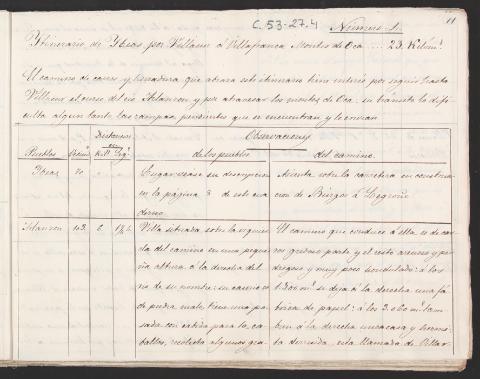 C. 53-27.4
Número 1.
11
Itinerario de Ybeas, por Villasur á Villafranca Montes de Oca .... 23. Kilóm.
El camino de carro y herradura que abraza este itinerario tiene interés por seguir hasta
Villasur el curso del rio Arlanzon y por atravesar los montes de Oca: su tránsito lo difi-
culta algun tanto las rampas, pendientes que se encuentran y le envian
Pueblos
Vecin.
Distancias en
Kil. Leg.
Observaciones
de los pueblos
del camino.
Ybeas 70 Lugar vease su descripcion
en la página 3 de este cua
derno.
Asienta sobre la carretera en construc
cion de Búrgos á Logroño
Arlanzon 103. 6. 1½
Villa situada sobre la izquier
da del camino en una peque
ña altura á la derecha del
rio de su nombre: su caserio es
de piedra malo, tiene una po
sada con cabida para 10 ca-
ballos, recolecta algunos gra-
El camino que conduce á ella es de car
ros gredoso parte y el resto arenoso y pe
dregoso y muy poco ondulado: á los
1.500 m. se deja á la derecha una fá
brica de papel: á los 3.260 m. tam
bien á la derecha una casa y hermi-
ta derruida, esta llamada de Villar-